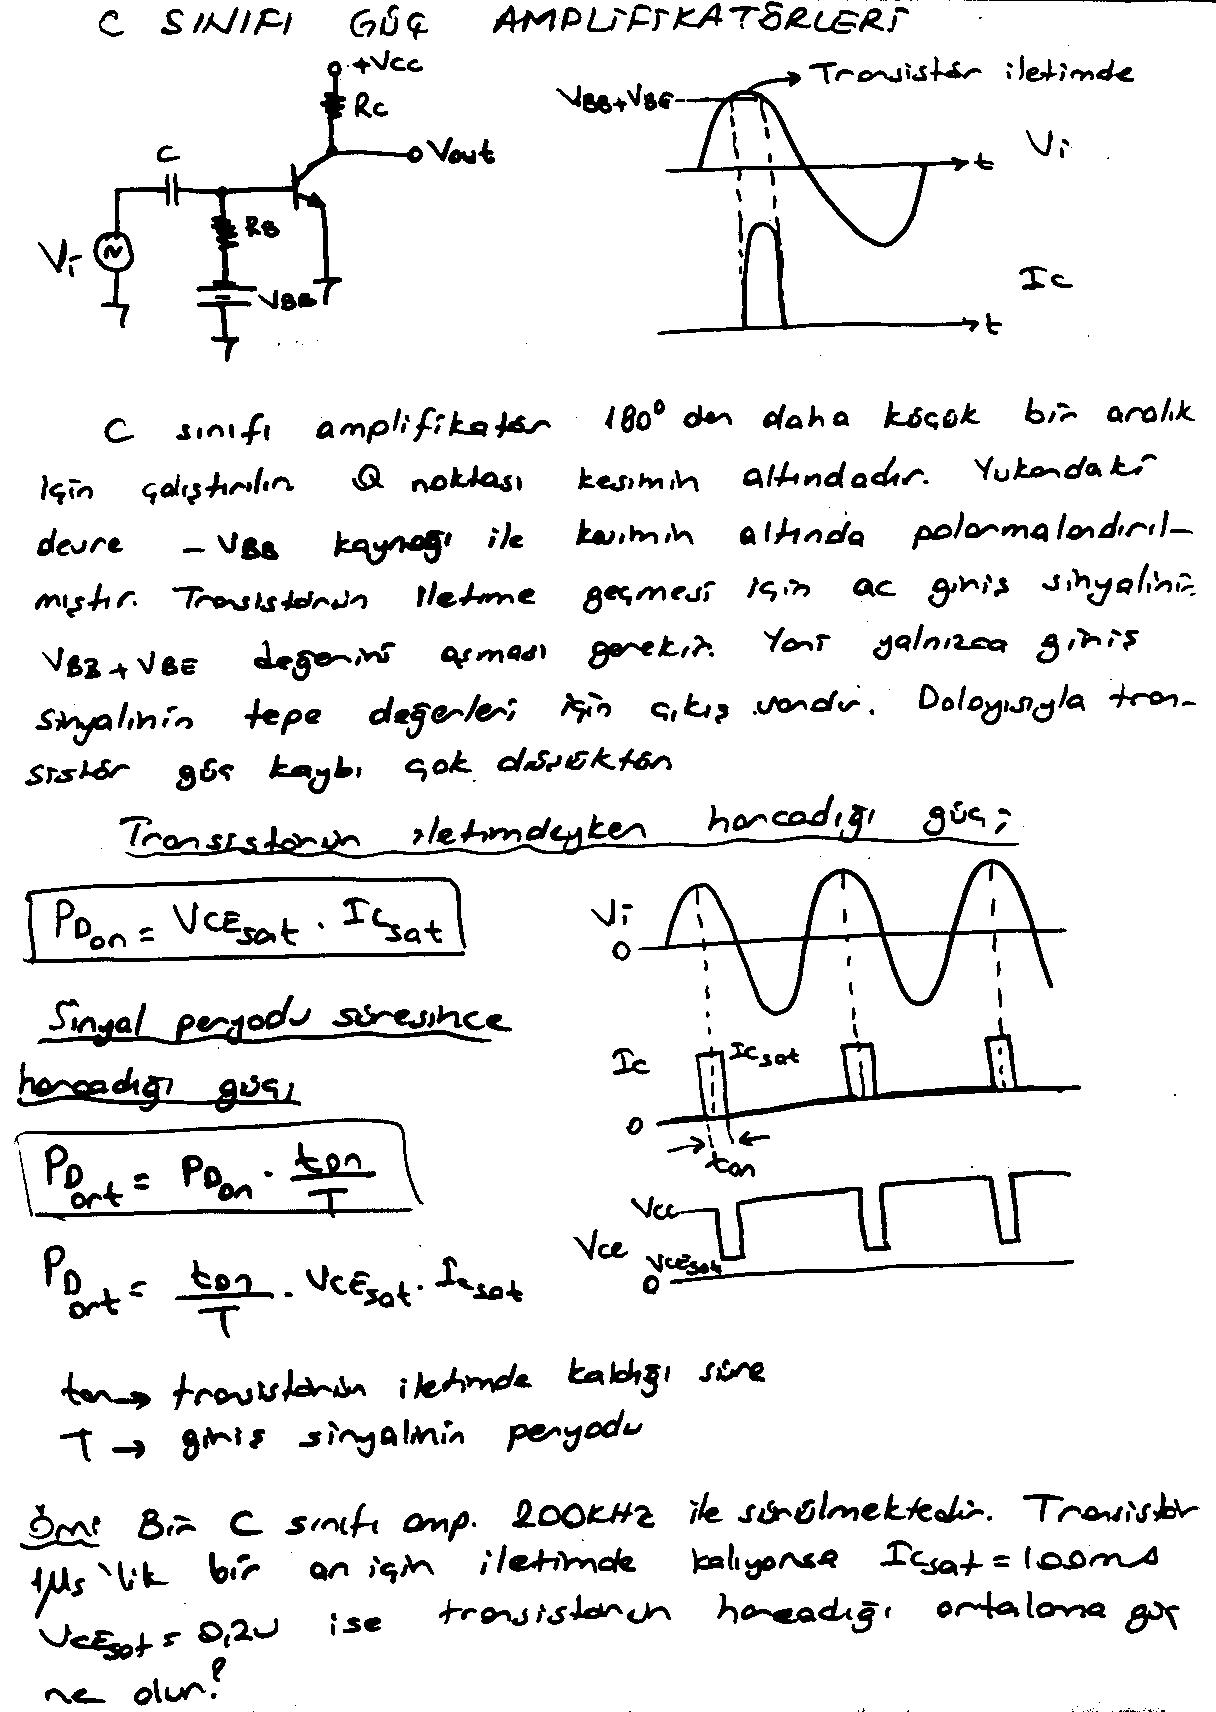 C SINIFI GÜÇ AMPLİFİKATÖRLERİ
+Vcc
Rc
Vout
C
RB
Vi
VBB
VBB+VBE
Transistör iletimde
Vi
t
Ic
t
C sınıfı amplifikatör 180° den daha küçük bir aralık
için çalıştırılır. Q noktası kesimin altındadır. Yukarıdaki
devre -VBB kaynağı ile kesimin altında polarmalandırıl-
mıştır. Transistörün iletime geçmesi için ac giriş sinyalinin
VBB+VBE değerini aşması gerekir. Yani yalnızca giriş
sinyalinin tepe değerleri için çıkış vardır. Dolayısıyla tran-
sistör güç kaybı çok düşüktür
Transistörün iletimdeyken harcadığı güç;
PDon = VCEsat . ICsat
Sinyal peryodu süresince
harcadığı güç;
PDort = PDon . ton/T
PDort = ton/T . VCEsat . Icsat
Vi
0
Ic
Icsat
0
ton
Vcc
Vce
VCEsat
0
ton → transistörün iletimde kaldığı süre
T → giriş sinyalinin peryodu
Örn: Bir C sınıfı amp. 200KHz ile sürülmektedir. Transistör
1μs'lik bir an için iletimde kalıyorsa ICsat = 100mA
VCEsat = 0,2V ise transistörün harcadığı ortalama güç
ne olur?